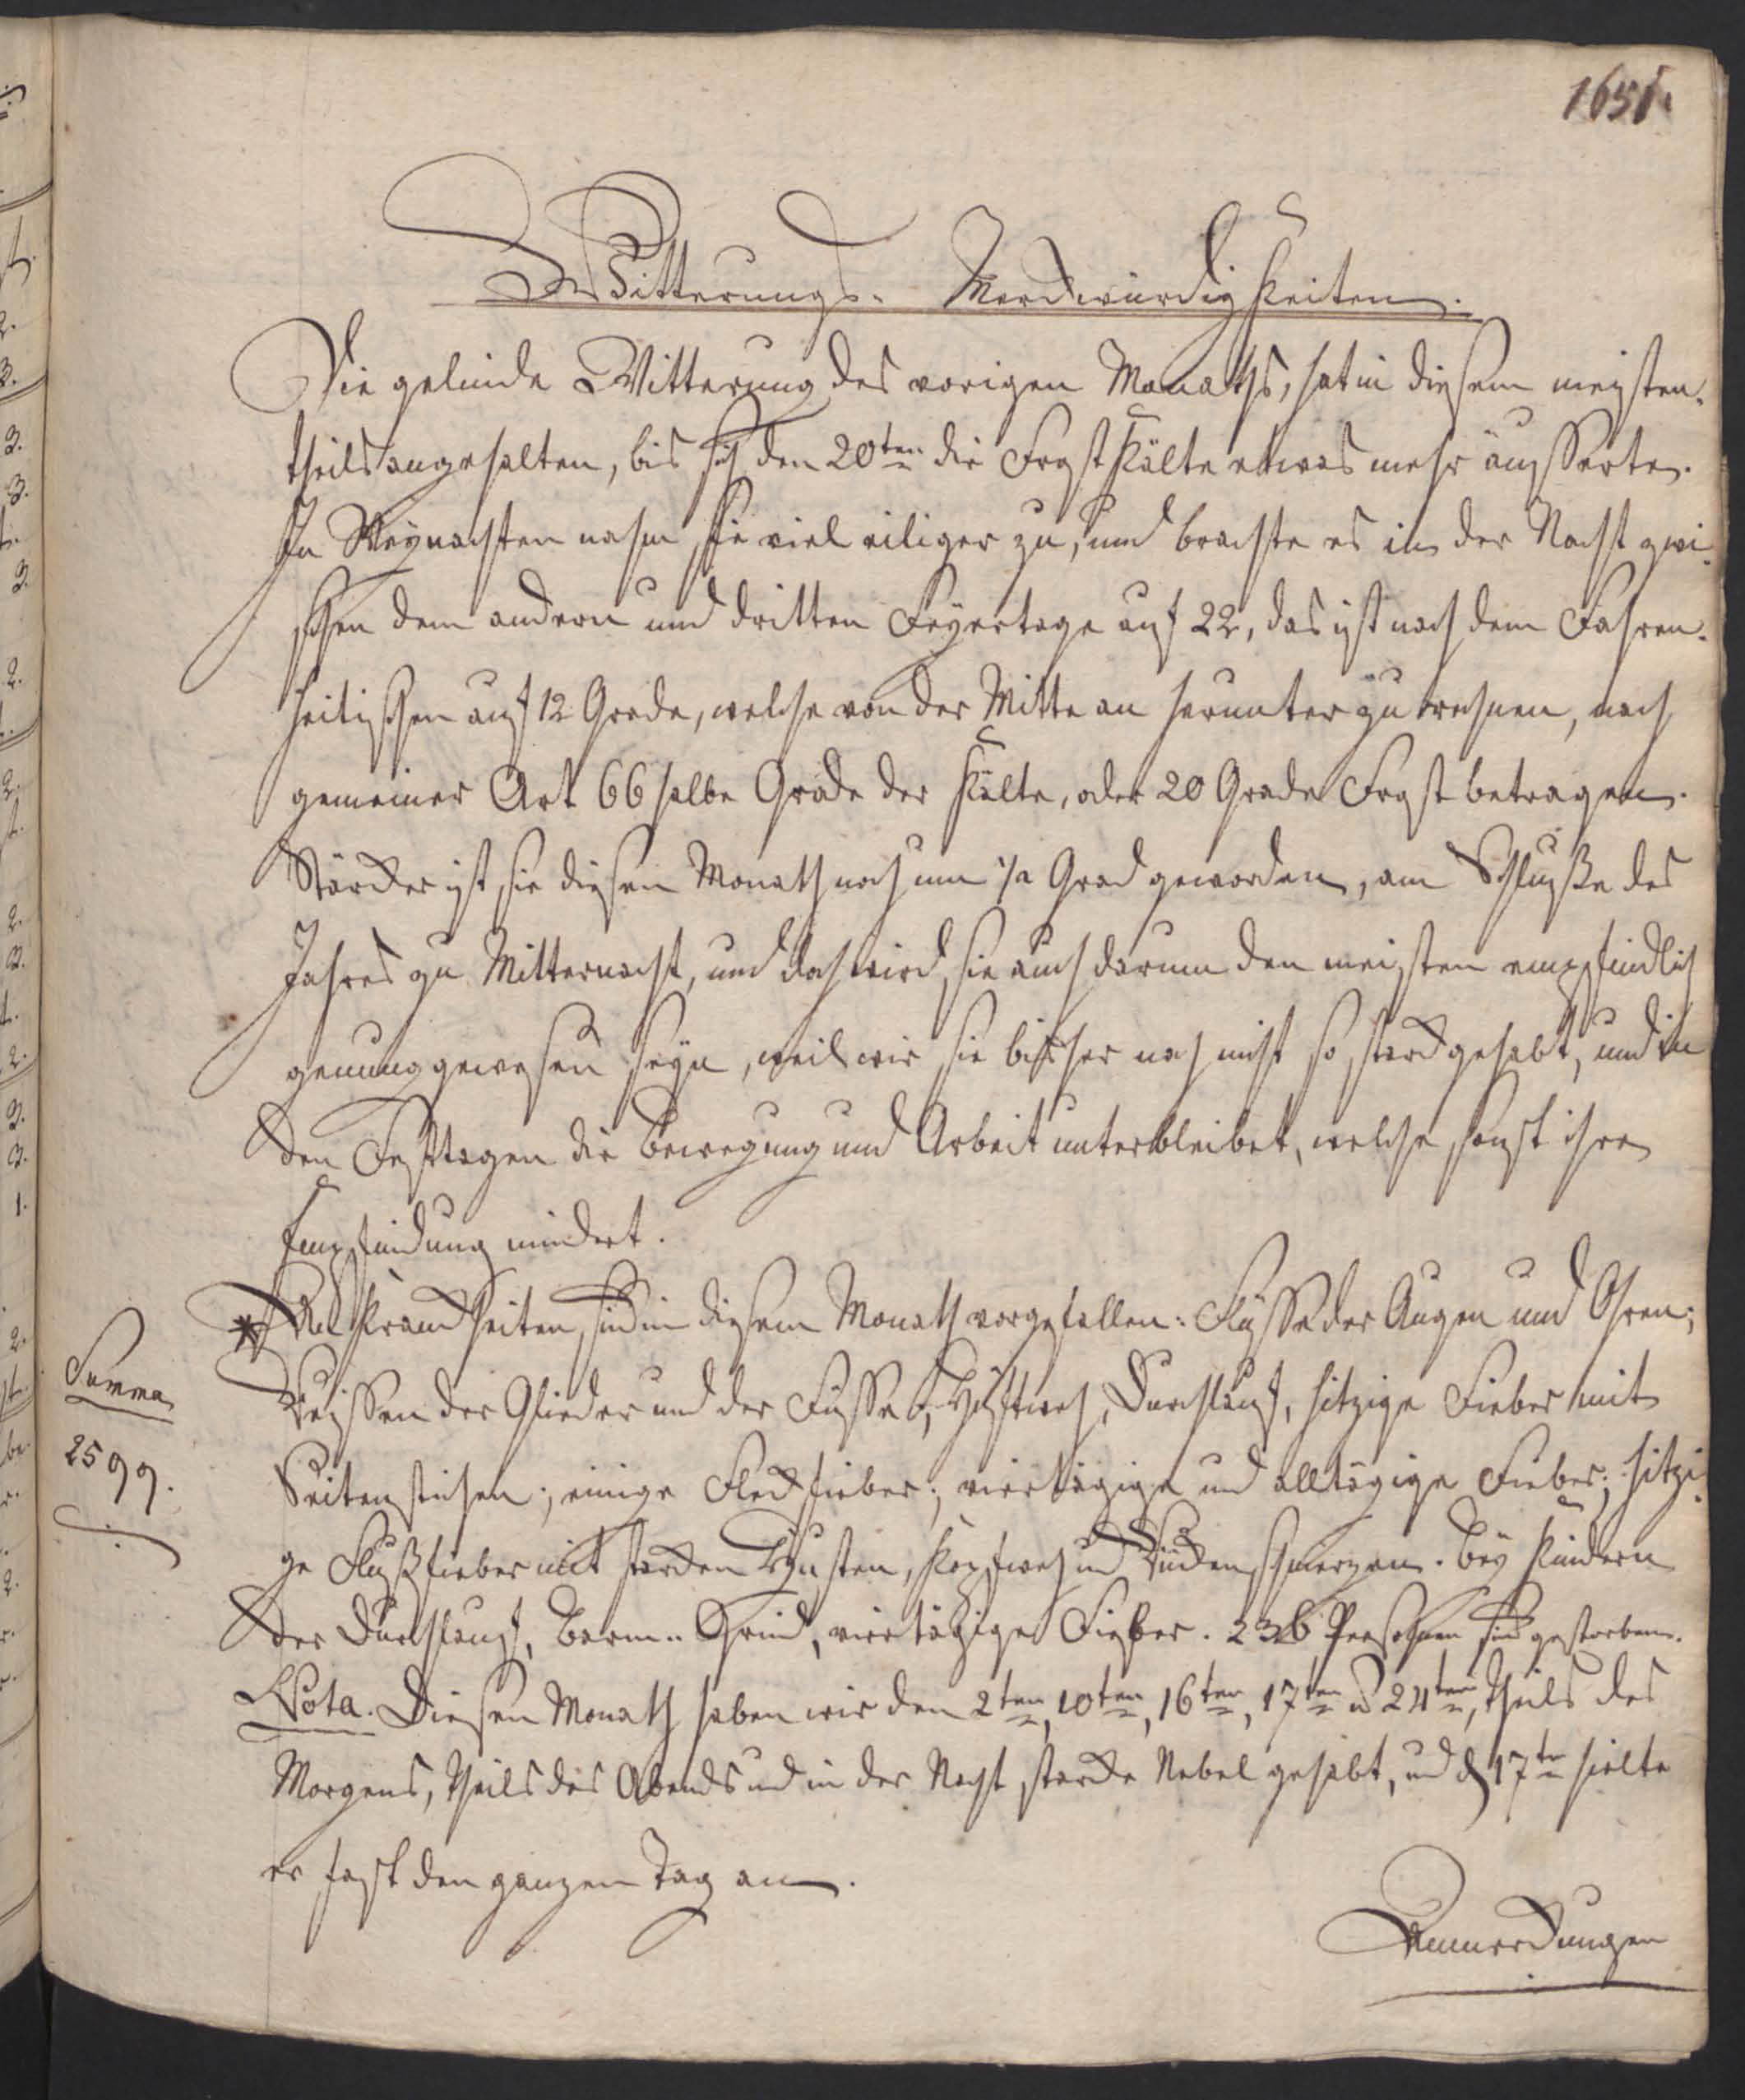 1651.
Witterungs- Merckwürdigkeiten.
Die gelinde Witterung des vorigen Monaths, hat in diesem meisten-
theils angehalten, bis sich den 20ten die Frost Kälte etwas mehr äusserte.
In Weynachten nahm sie viel eiliger zu, und brachte es in der Nacht zwi-
schen dem andern und dritten Feyertage auf 22, das ist nach dem Fahren-
heitischen auf 12 Grade, welche von der Mitte an herunter zu rechnen, nach
gemeiner Art 66 halbe Grade der Kälte, oder 20 Grade Frost betragen.
Stärcker ist sie diesen Monath noch um 1/2 Grad geworden, am Schluße des
Jahres zu Mitternacht, und doch wird sie auch darum den meisten empfindlich
genung gewesen seyn, weil wir sie bisher noch nicht so starck gehabt, und in
den Festtagen die Bewegung und Arbeit unterbleibet, welche sonst ihre
Empfindung mindert.
* An Kranckheiten sind in diesem Monath vorgefallen: Flüsse der Augen und Ohren;
Reissen der Glieder und der Füsse, Hüftweh, Durchlauf, hitzige Fieber mit
Seitenstichen; einige Fleckfieber; viertägige und alltägige Fieber; hitzi-
ge Flußfieber mit starcken Husten, Kopfweh und Rückenschmerzen. Bey Kindern
der Durchlauf, Grind, viertägige Fieber. 236 Personen sind gestorben.
Nota. Diesen Monath haben wir den 2ten, 10ten, 16ten, 17ten u 24ten, theils des
Morgens, theils des Abends und in der Nacht starcke Nebel gehabt, und d 17te hielte
er fast den ganzen Tag an.
Anmerckungen
Summa
2599.